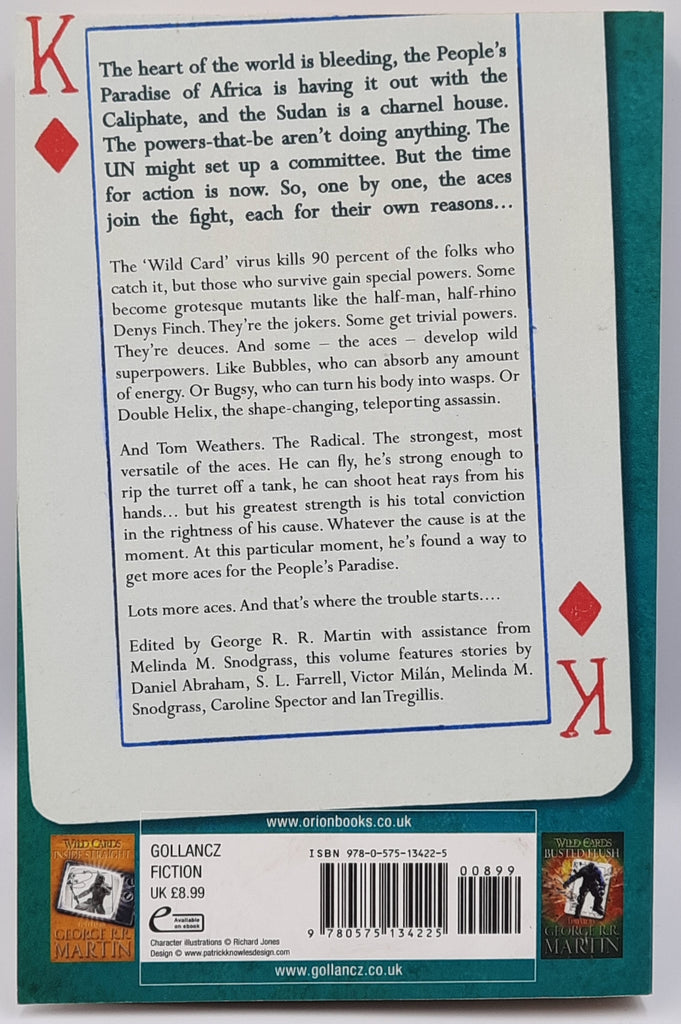 K
The heart of the world is bleeding, the People's
Paradise of Africa is having it out with the
Caliphate, and the Sudan is a charnel house.
The powers-that-be aren't doing anything. The
UN might set up a committee. But the time
for action is now. So, one by one, the aces
join the fight, each for their own reasons...
The 'Wild Card' virus kills 90 percent of the folks who
catch it, but those who survive gain special powers. Some
become grotesque mutants like the half-man, half-rhino
Denys Finch. They're the jokers. Some get trivial powers.
They're deuces. And some – the aces – develop wild
superpowers. Like Bubbles, who can absorb any amount
of energy. Or Bugsy, who can turn his body into wasps. Or
Double Helix, the shape-changing, teleporting assassin.
And Tom Weathers. The Radical. The strongest, most
versatile of the aces. He can fly, he's strong enough to
rip the turret off a tank, he can shoot heat rays from his
hands... but his greatest strength is his total conviction
in the rightness of his cause. Whatever the cause is at the
moment. At this particular moment, he's found a way to
get more aces for the People's Paradise.
Lots more aces. And that's where the trouble starts....
Edited by George R. R. Martin with assistance from
Melinda M. Snodgrass, this volume features stories by
Daniel Abraham, S. L. Farrell, Victor Milán, Melinda M.
Snodgrass, Caroline Spector and Ian Tregillis.
K
www.orionbooks.co.uk
WILD CARDS
INSIDE STRAIGHT
GEORGE R.R.
MARTIN
GOLLANCZ
FICTION
UK £8.99
e Available
on ebook
Character illustrations © Richard Jones
Design © www.patrickknowlesdesign.com
ISBN 978-0-575-13422-5
00899
9 780575 134225
WILD CARDS
BUSTED FLUSH
GEORGE R.R.
MARTIN
www.gollancz.co.uk